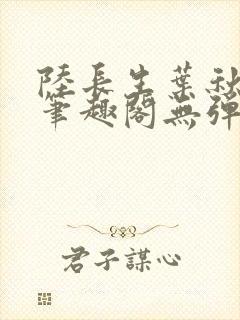 陸長生葉秋
筆趣閣無彈
君子謀心